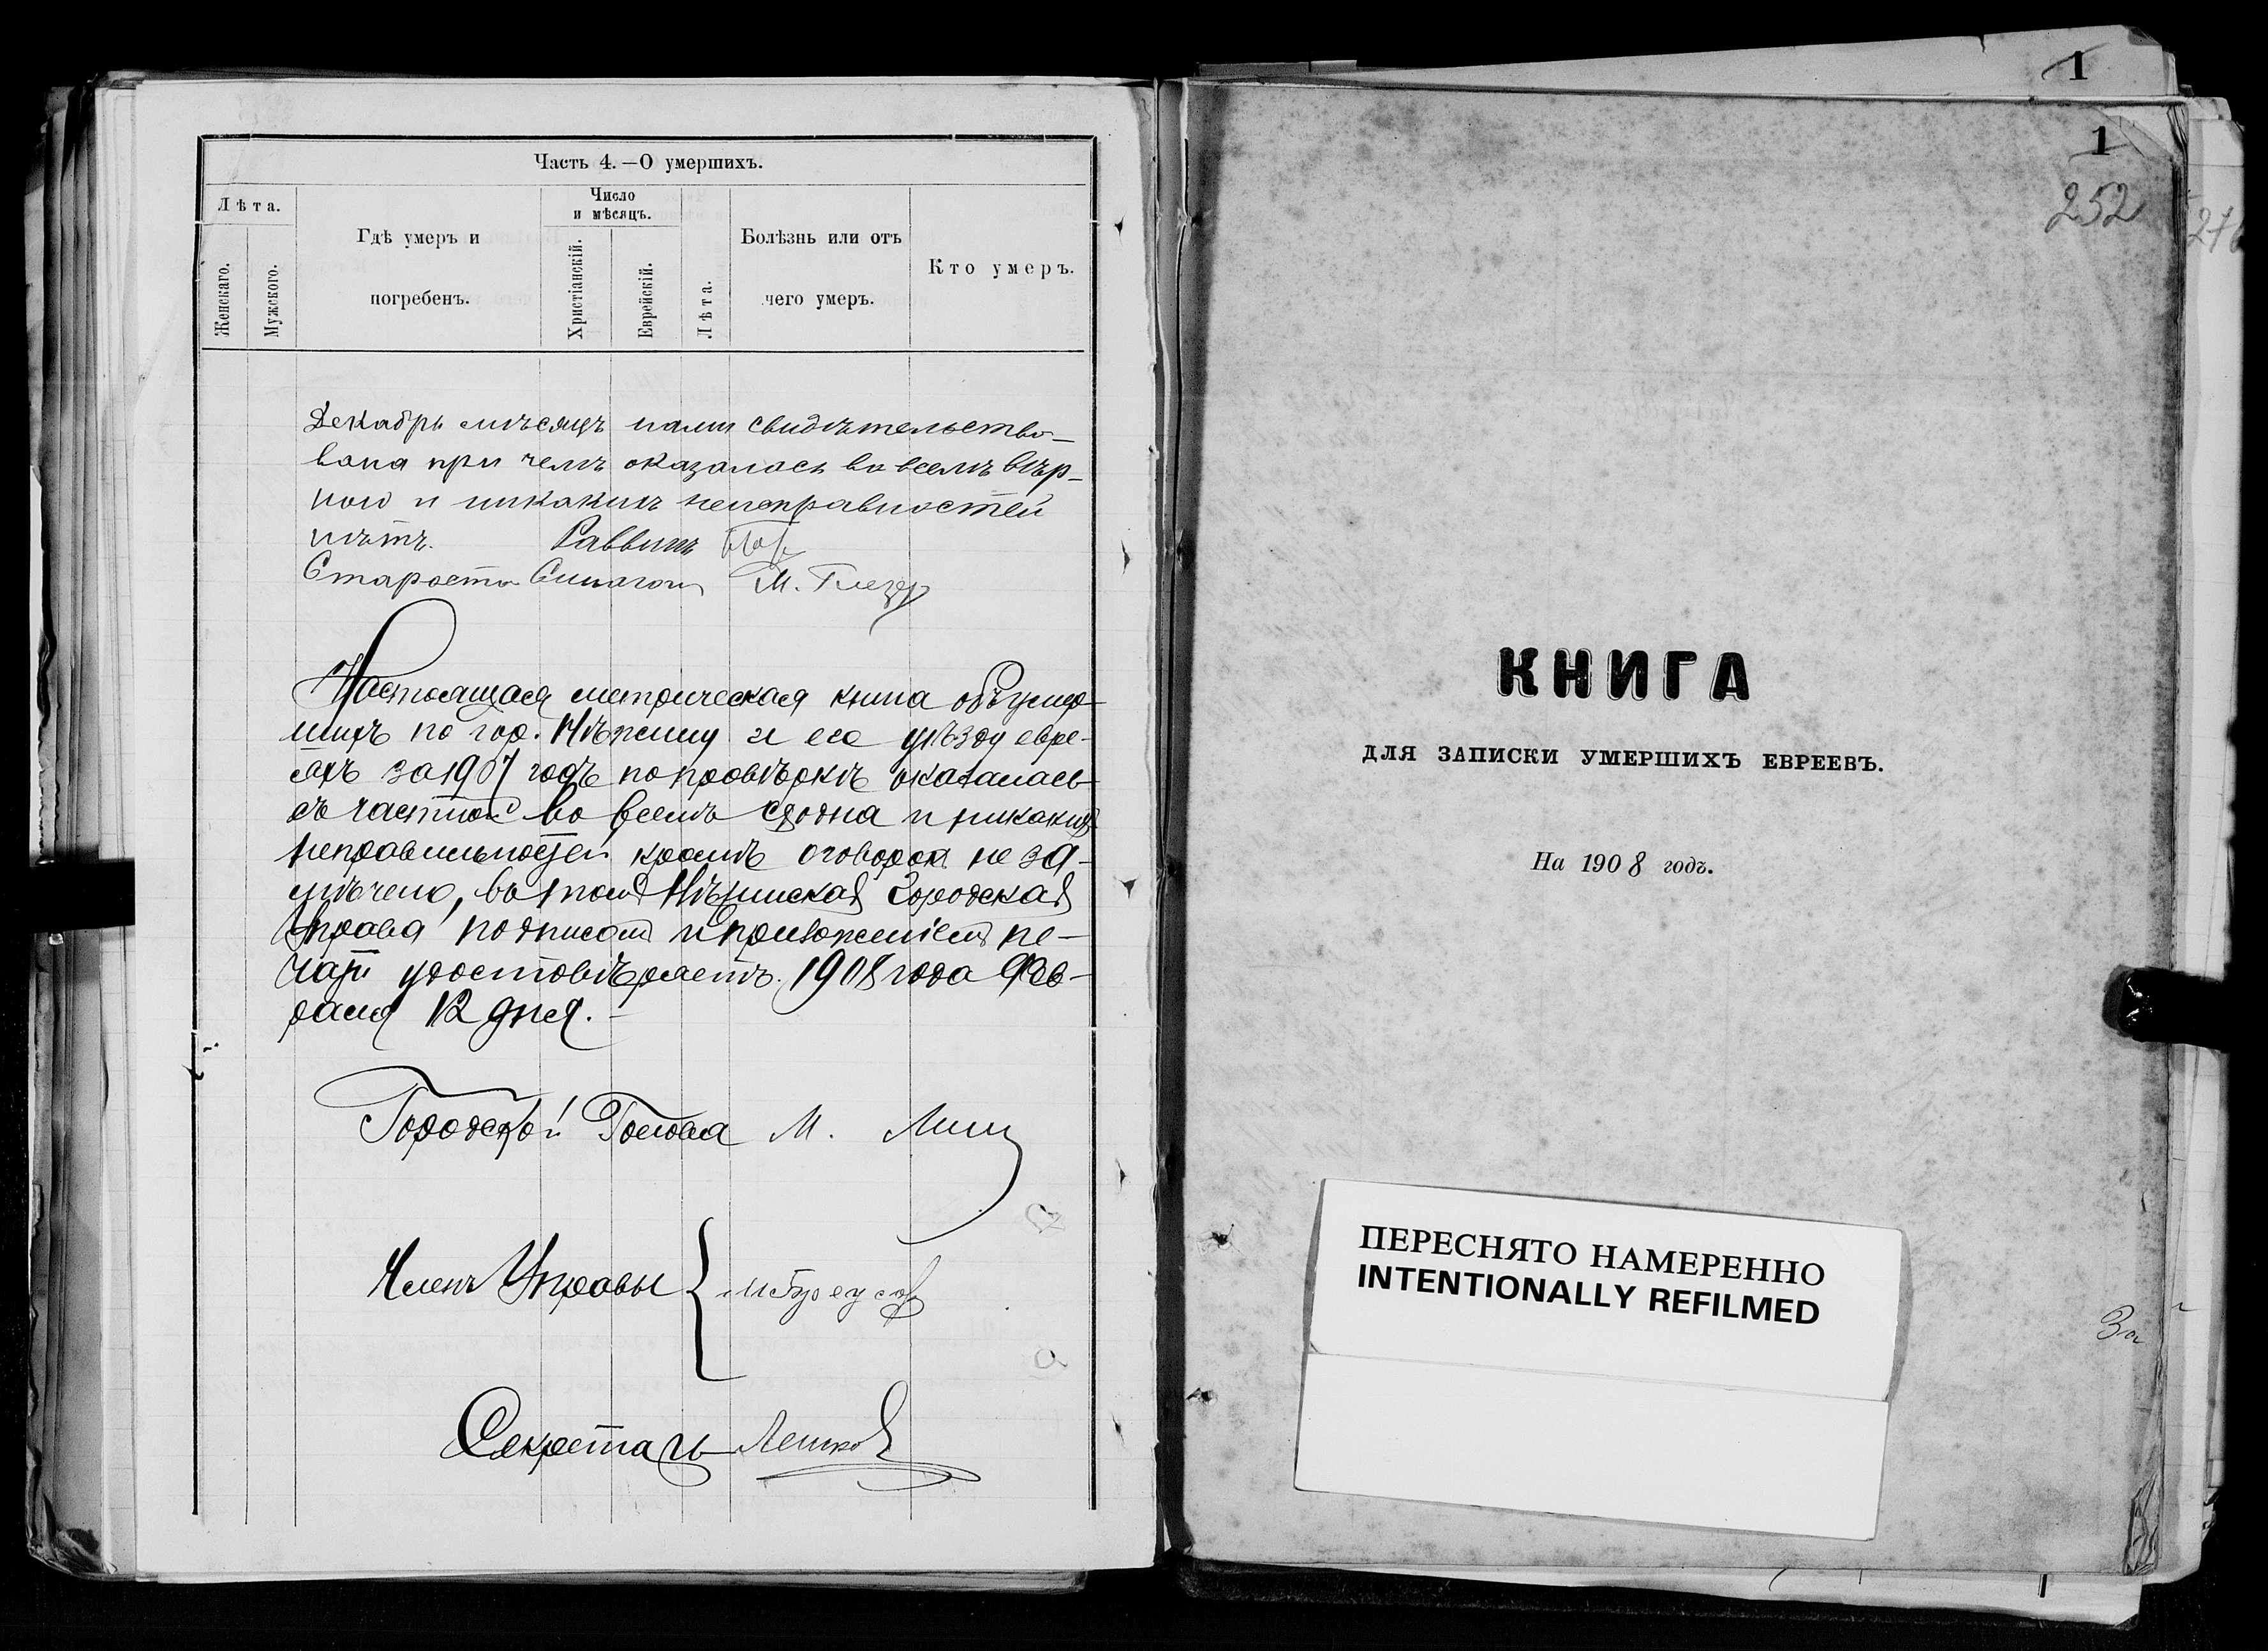 Часть 4.—О умершихъ.
Лѣта.
Женскаго.
Мужского.
Гдѣ умеръ и
погребенъ.
Число
и мѣсяцъ.
Христіанскій.
Еврейскій.
Лѣта.
Болѣзнь или отъ
чего умеръ.
Кто умеръ.
Декабрь мѣсяцъ нами свидѣтельство-
вана при чемъ оказалось во всемъ вѣр-
ною и никакихъ неисправностей
нѣтъ. Раввинъ
Староста Синагоги М. Глезер
Настоящая метрическая книга объ умер-
шихъ по гор. Нѣжину и его уѣзду евре-
яхъ за 1907 годъ по провѣркѣ оказалась
съ частною во всемъ сходна и никакихъ
неправильностей кромѣ оговорок не за-
мѣчено, въ томъ Нѣжинская Городская
Управа подписомъ и приложеніемъ пе-
чати удостовѣряетъ. 1908 года Фев-
раля 12 дня.
Городской Голова М.
Членъ Управы
Секретарь
1
1
252
КНИГА
ДЛЯ ЗАПИСКИ УМЕРШИХЪ ЕВРЕЕВЪ.
На 1908 годъ.
ПЕРЕСНЯТО НАМЕРЕННО
INTENTIONALLY REFILMED
За